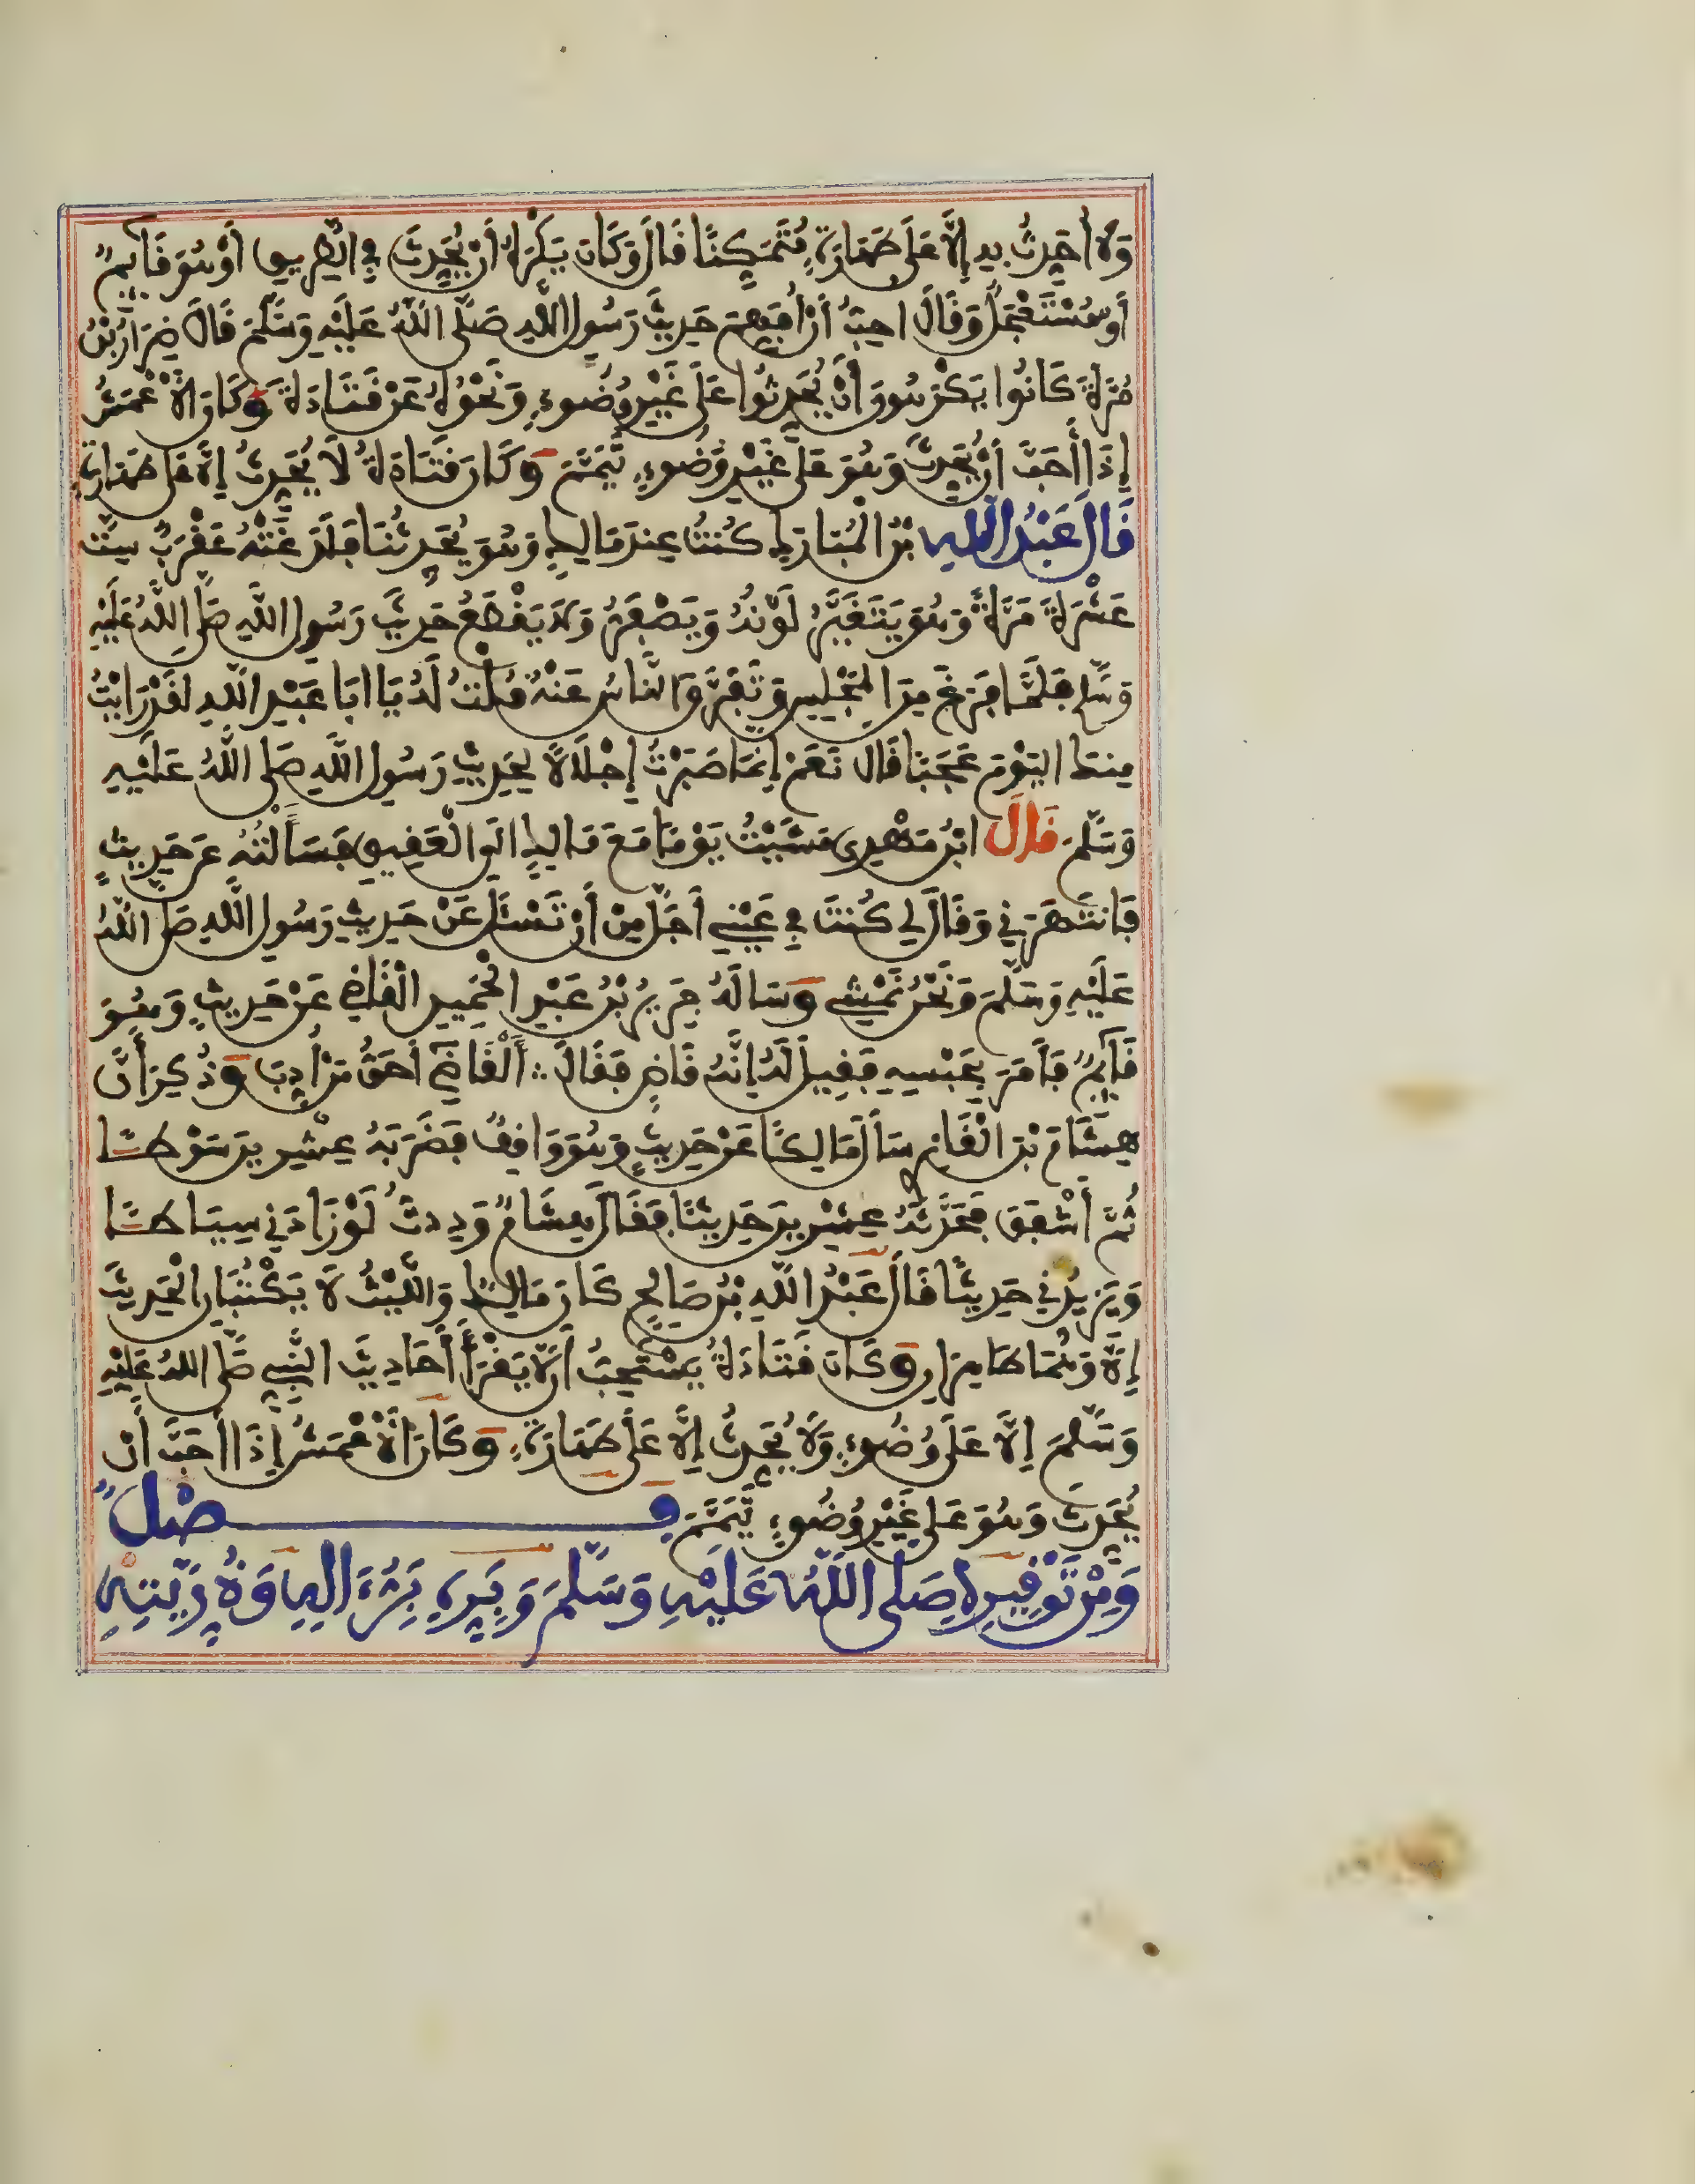 وَلَا أُحَدِّثُ بِهِ إِلَّا عَلَى طَهَارَةٍ مُتَمَكِّنًا قَالَ وَكَانَ يَكْرَهُ أَنْ يُحَدِّثَ فِي الطَّرِيقِ أَوْ هُوَ قَائِمٌ
أَوْ مُسْتَعْجِلٌ وَقَالَ احِبُّ أَنْ أُفَهِّمَ حَدِيثَ رَسُولِ اللَّهِ صَلَّى اللَّهُ عَلَيْهِ وَسَلَّمَ قَالَ ضِرَارُ بْنُ
مُرَّةَ كَانُوا يَكْرَهُونَ أَنْ يُحَدِّثُوا عَلَى غَيْرِ وُضُوءٍ وَنَحْوُهُ عَنْ قَتَادَةَ وَكَانَ الْأَعْمَشُ
إِذَا أَحَبَّ أَنْ يُحَدِّثَ وَهُوَ عَلَى غَيْرِ وُضُوءٍ تَيَمَّمَ وَكَانَ قَتَادَةُ لَا يُحَدِّثُ إِلَّا عَلَى طَهَارَةٍ
قَالَ عَبْدُ اللَّهِ بْنُ الْمُبَارَكِ كُنْتُ عِنْدَ مَالِكٍ وَهُوَ يُحَدِّثُنَا فَلَدَغَتْهُ عَقْرَبٌ سِتَّ
عَشْرَةَ مَرَّةً وَهُوَ يَتَغَيَّرُ لَوْنُهُ وَيَصْفَرُّ وَلَا يَقْطَعُ حَدِيثَ رَسُولِ اللَّهِ صَلَّى اللَّهُ عَلَيْهِ
وَسَلَّمَ فَلَمَّا فَرَغَ مِنَ الْمَجْلِسِ وَتَفَرَّقَ النَّاسُ عَنْهُ قُلْتُ لَهُ يَا ابَا عَبْدِ اللَّهِ لَقَدْ رَايْتُ
مِنْكَ الْيَوْمَ عَجَبًا قَالَ نَعَمْ إِنَّمَا صَبَرْتُ إِجْلَالًا لِحَدِيثِ رَسُولِ اللَّهِ صَلَّى اللَّهُ عَلَيْهِ
وَسَلَّمَ قَالَ ابْنُ مَهْدِي مَشَيْتُ يَوْمًا مَعَ مَالِكٍ الَى الْعَقِيقِ فَسَأَلْتُهُ عَنْ حَدِيثٍ
فَانْتَهَرَنِي وَقَالَ لِي كُنْتَ فِي عَيْنِي أَجَلَّ مِنْ أَنْ تَسْئَلَ عَنْ حَدِيثِ رَسُولِ اللَّهِ صَلَّى اللَّهُ
عَلَيْهِ وَسَلَّمَ وَنَحْنُ نَمْشِي وَسَالَهُ جَرِيرُ بْنُ عَبْدِ الْحَمِيدِ الْقَاضِي عَنْ حَدِيثٍ وَهُوَ
قَائِمٌ فَأَمَرَ بِحَبْسِهِ فَقِيلَ لَهُ إِنَّهُ قَاضٍ فَقَالَ أَلْقَاضِي أَحَقُّ مَنْ أُدِّبَ وَذُكِرَ أَنَّ
هِشَامَ بْنَ الْغَازِ سَأَلَ مَالِكًا عَنْ حَدِيثٍ وَهُوَ وَاقِفٌ فَضَرَبَهُ عِشْرِينَ سَوْطًا
ثُمَّ أَشْفَقَ فَحَدَّثَهُ عِشْرِينَ حَدِيثًا فَقَالَ هِشَامٌ وَدِدتُّ لَوْ زَادَنِي سِيَاطًا
وَيَزِيدُنِي حَدِيثًا قَالَ عَبْدُ اللَّهِ بْنُ صَالِحٍ كَانَ مَالِكٌ وَاللَّيْثُ لَا يَكْتُبَانِ الْحَدِيثَ
إِلَّا وَهُمَا طَاهِرَانِ وَكَانَ قَتَادَةُ يَسْتَحِبُّ أَنْ لَا يَقْرَأَ أَحَادِيثَ النَّبِيِّ صَلَّى اللَّهُ عَلَيْهِ
وَسَلَّمَ إِلَّا عَلَى وُضُوءٍ وَلَا يُحَدِّثُ إِلَّا عَلَى طَهَارَةٍ وَكَانَ الْأَعْمَشُ إِذَا أَحَبَّ أَنْ
يُحَدِّثَ وَهُوَ عَلَى غَيْرِ وُضُوءٍ تَيَمَّمَ فَصْلٌ
وَمِنْ تَوْقِيرِهِ صَلَّى اللَّهُ عَلَيْهِ وَسَلَّمَ وَبِرِّهِ بِرُّ ءَالِهِ وَذُرِّيَّتِهِ